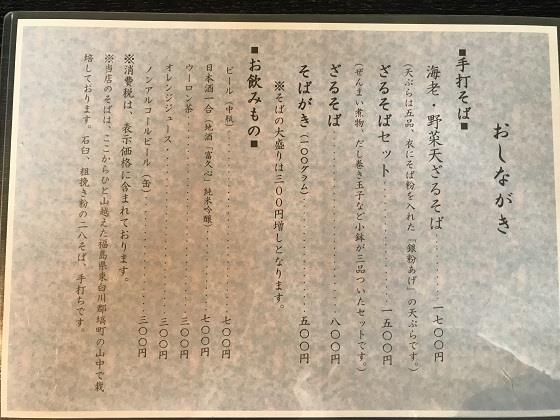 おしながき
■手打そば■
海老・野菜天ざるそば……………一七〇〇円
（天ぷらは五品、衣にそば粉を入れた「銀粉あげ」の天ぷらです。）
ざるそばセット……………一五〇〇円
（ぜんまい煮物、だし巻き玉子など小鉢が三品ついたセットです。）
ざるそば……………八〇〇円
そばがき（一〇〇グラム）……………五〇〇円
※そばの大盛りは三〇〇円増しとなります。
■お飲みもの■
ビール（中瓶）……………七〇〇円
日本酒一合（地酒「富久心」純米吟醸）……………七〇〇円
ウーロン茶……………三〇〇円
オレンジジュース……………三〇〇円
ノンアルコールビール（缶）……………三〇〇円
※消費税は、表示価格に含まれております。
※当店のそばは、ここからひと山越えた福島県東白川郡塙町の山中で栽
培しております。石臼、粗挽き粉の二八そば、手打ちです。